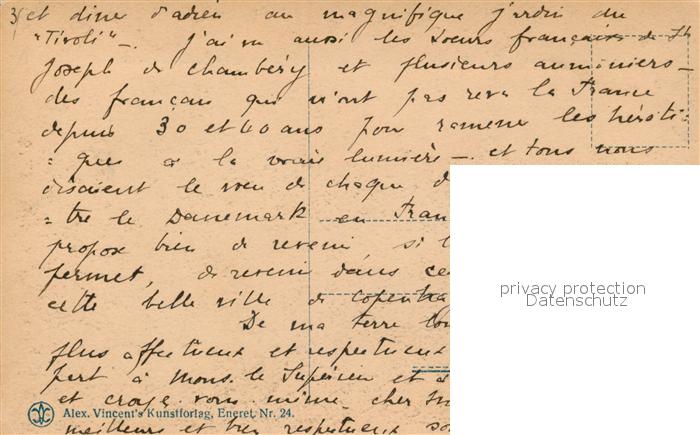 3/ et diner d'adieu au magnifique jardin du
"Tivoli" -. j'ai vu aussi les soeurs françaises de St
Joseph de Chambéry et plusieurs aumôniers -
des français qui n'ont pas revu la France
depuis 30 et 40 ans pour ramener les héréti=
=ques à la vraie lumière -. et tous nous
disaient le voeu de chaque
=tre le Danemark en Fran
propose bien de revenir si l
permet, de revenir dans ce
cette belle ville de Copenha
De ma terre
plus affectueux et respectueux
part à Mons. le Supérieur et à
et croyez vous même, cher
meilleurs et bien respectueux so
Alex. Vincent's Kunstforlag, Eneret, Nr. 24.
privacy protection
Datenschutz